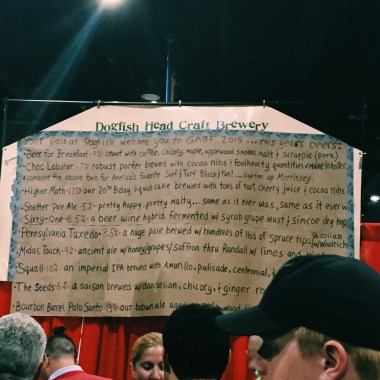 Dogfish Head Craft Brewery
Your pals at Dogfish welcome you to GABF 2015...this years beers:
• Beer for Breakfast - stout with coffee, chicory, maple, applewood smoked malt & scrapple (pork)
• Choc Lobster - 7% robust porter brewed with cocoa nibs & foolhearty quantities of Maine lobster
combat the above two for America's favorite Surf & Turf Blacktan! ...lighten up Morrissey.
• Higher Math - 17% our 20th Bday liquid cake brewed with tons of tart cherry juice & cocoa nibs
• Shelter Pale Ale - 5% pretty hoppy, pretty malty... same as it ever was, same as it ever w
Sixty-One - 6.5% a beer wine hybrid fermented w/ syrah grape must & simcoe dry hop
Pennsylvania Tuxedo - 8.5% a huge pale brewed w/ hundreds of lbs of spruce tips @ collab w/ woolrich
Midas Touch - 9% ancient ale w/ honey/grapes/saffron thru Randall w/ limes and
Squall - 10% an imperial IPA brewed with Amarillo, palisade, centennial,
• The Seeds - a saison brewed w/ dandelion, chicory, & ginger ro
• Bourbon Barrel Palo Santo - our brown ale aged